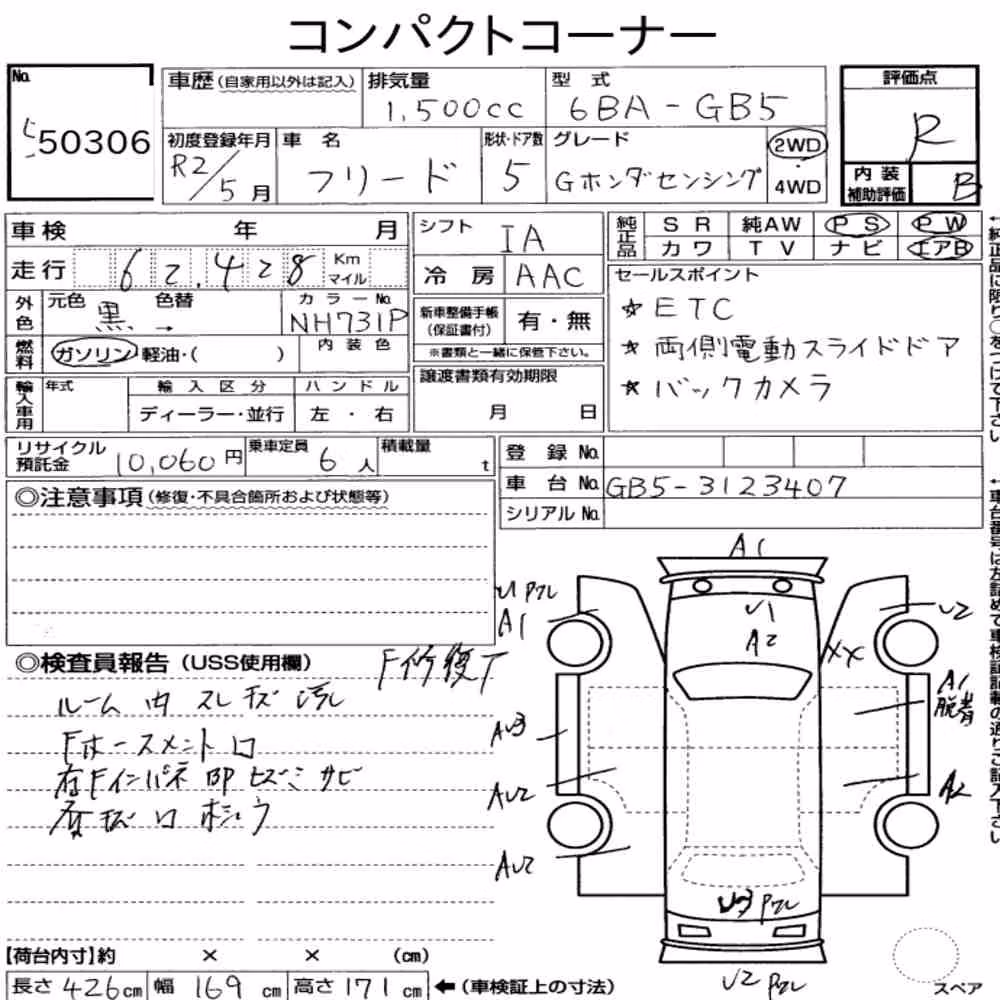 コンパクトコーナー
No. 50306
車歴 (自家用以外は記入) 排気量 1,500cc 型式 6BA-GB5
評価点 R
初度登録年月 R2/5月 車名 フリード 形状・ドア数 5 グレード Gホンダセンシング 2WD ・ 4WD
内装補助評価 B
車検 年 月
シフト IA
純正品 SR 純AW PS PW
カワ TV ナビ エアB
走行 62,428 Km マイル
冷房 AAC
外色 元色 黒 色替 → カラーNo. NH731P
新車整備手帳 (保証書付) 有・無
※書類と一緒に保管下さい。
セールスポイント
☆ ETC
☆ 両側電動スライドドア
☆ バックカメラ
燃料 ガソリン 軽油・( ) 内装色
譲渡書類有効期限
月 日
輸入車用 年式 輸入区分 ハンドル
ディーラー・並行 左・右
リサイクル預託金 10,060円 乗車定員 6人 積載量 t
登録No.
車台No. GB5-3123407
シリアルNo.
◎注意事項 (修復・不具合箇所および状態等)
◎検査員報告 (USS使用欄) F修復了
ルーム内スレキズ汚レ
右Fインパネ BP ヒズミ サビ
A1
U1 Pフレ
A1
U1
A2
U2
XX
A1
脱着
AU3
AU2
A2
AU2
U3 Pフレ
U2 Pフレ
【荷台内寸】約 × × (cm)
長さ 426cm 幅 169cm 高さ 171cm ←(車検証上の寸法)
スペア
←純正品に限り○をつけて下さい
←車台番号は左詰めで車検証記載の通りご記入下さい